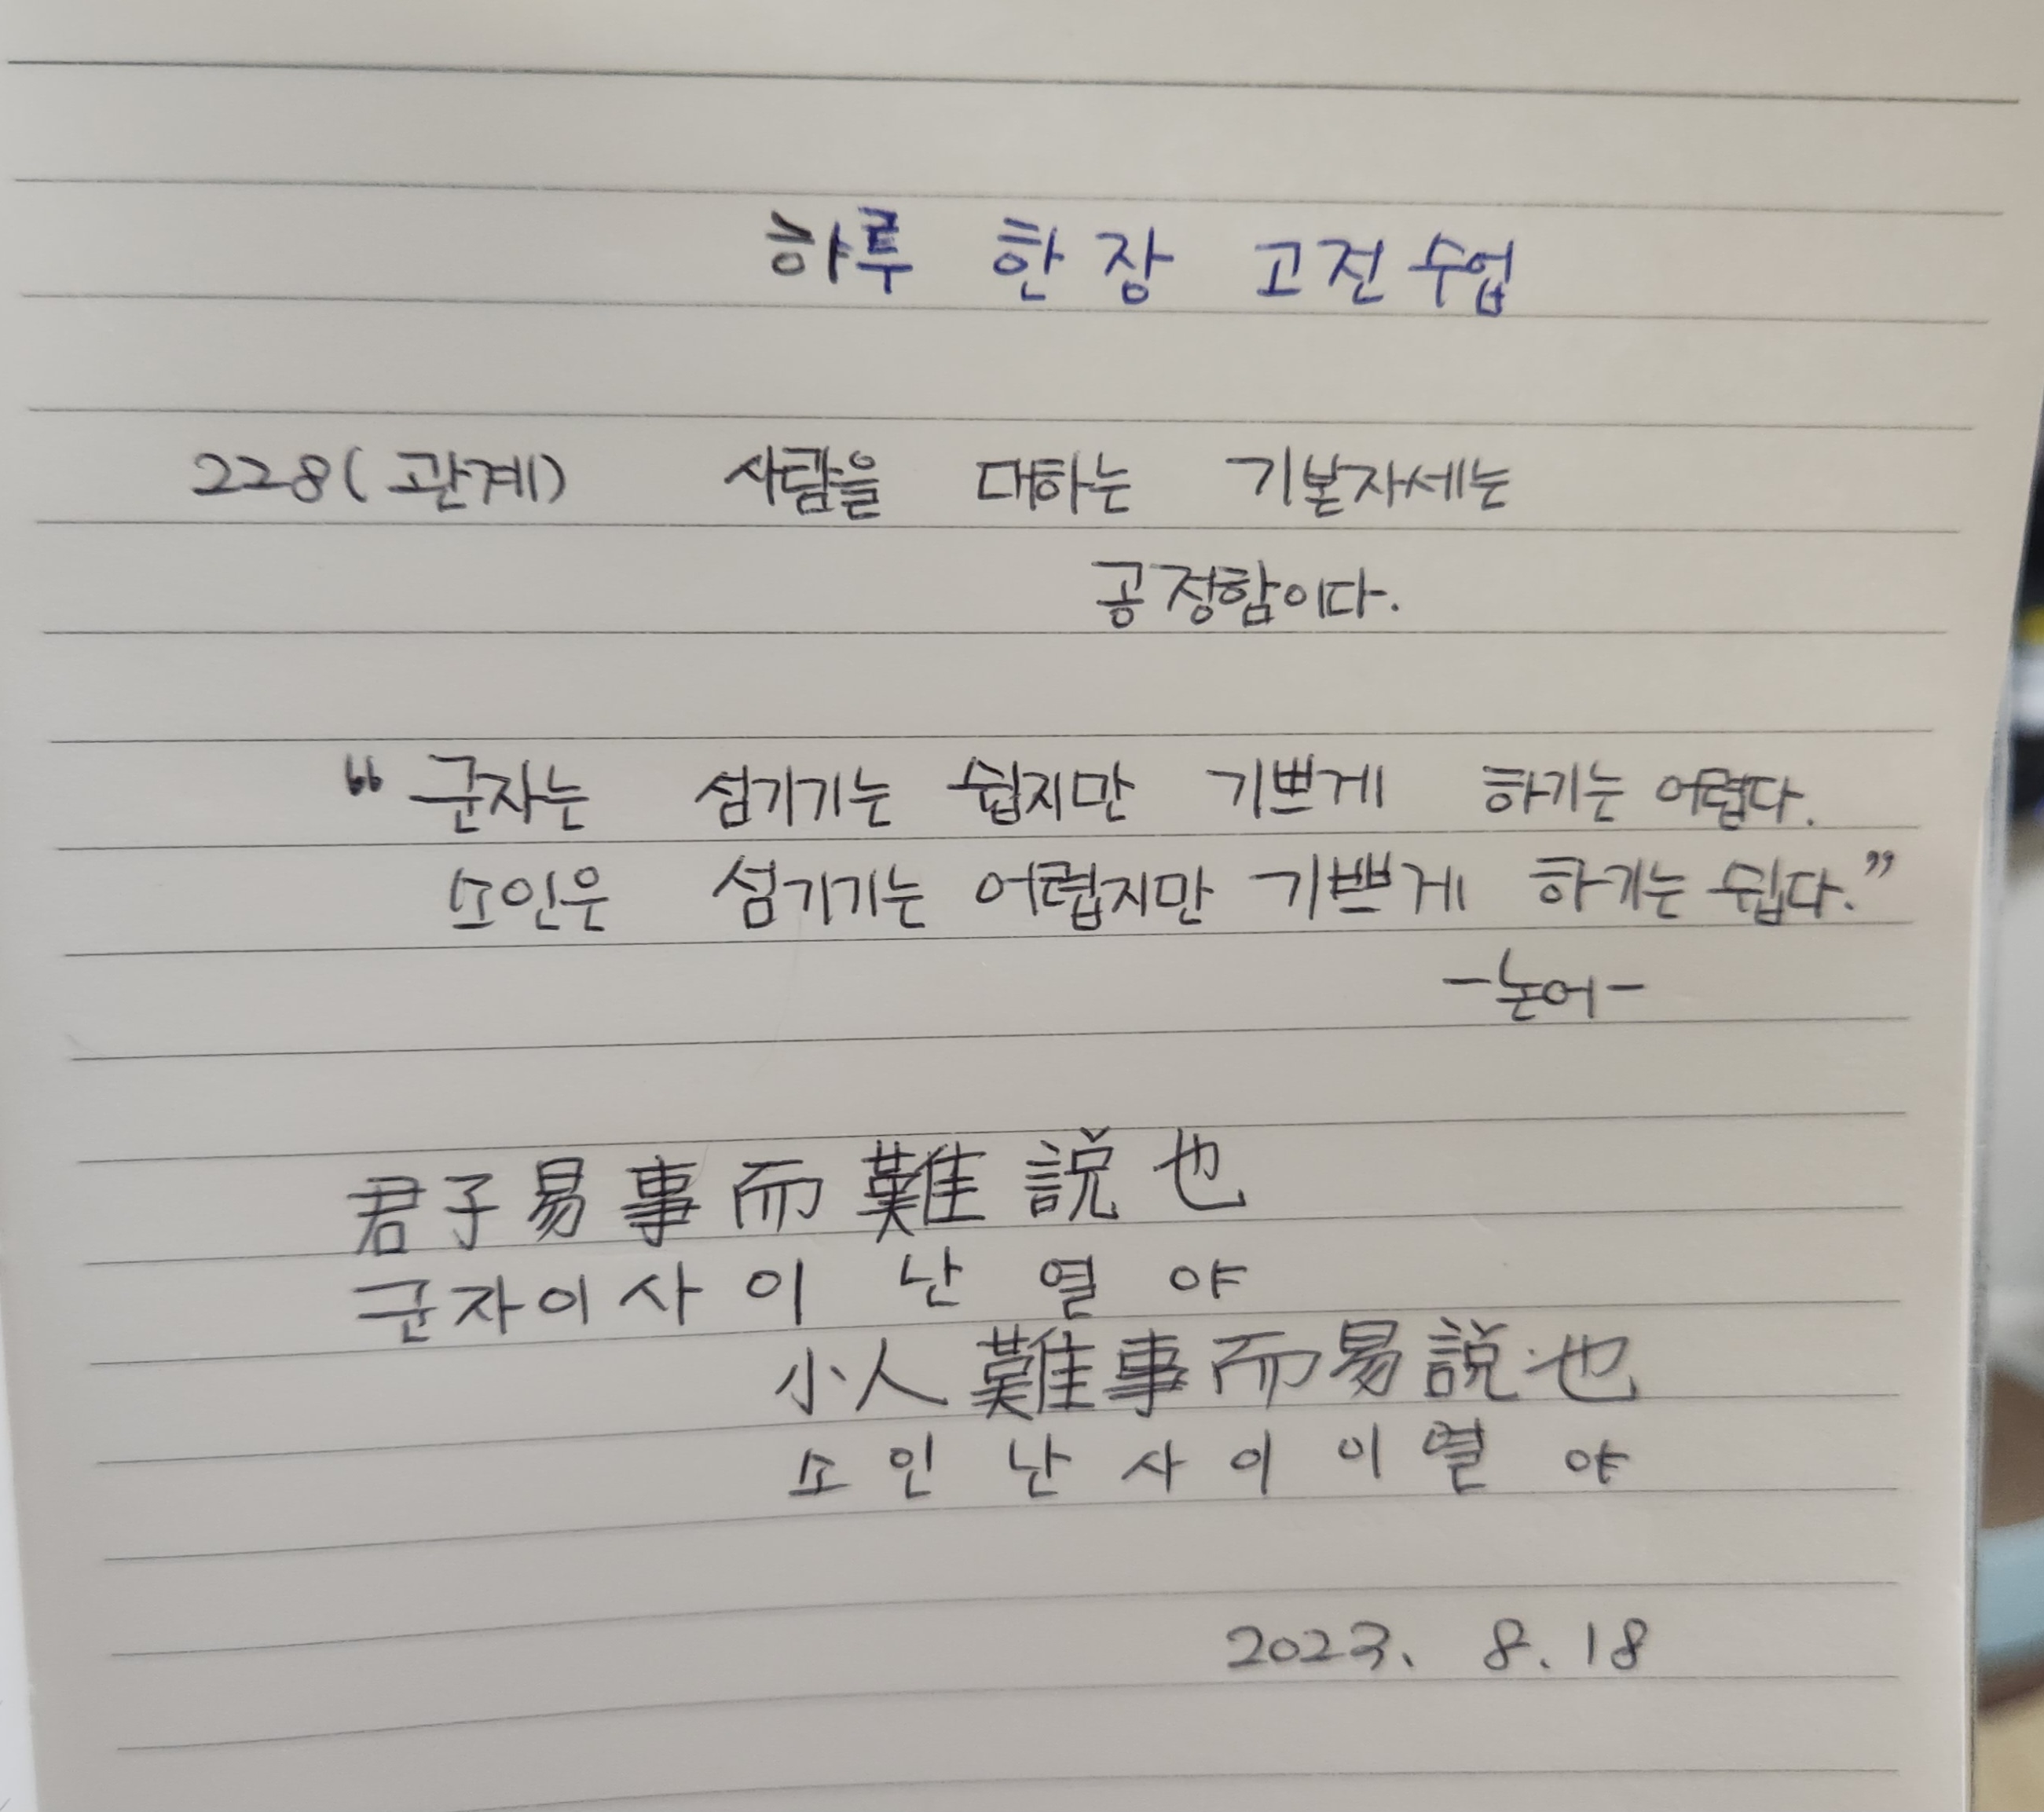 하루 한 장 고전 수업
228(관계) 사람을 대하는 기본자세는
공정함이다.
“군자는 섬기기는 쉽지만 기쁘게 하기는 어렵다.
소인은 섬기기는 어렵지만 기쁘게 하기는 쉽다.”
-논어-
君子易事而難說也
군자이사이난열야
小人難事而易說也
소인난사이이열야
2023. 8. 18